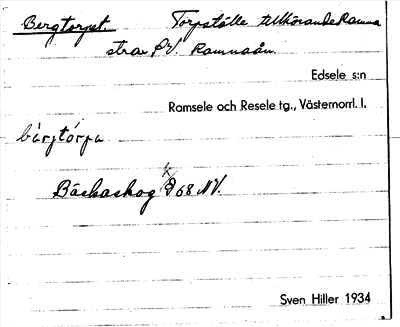 Bergtorpet. Torpställe tillhörande Ramna
strax SV. Ramnaån.
Edsele s:n
Ramsele och Resele tg., Västernorrl. l.
bärjtórpa
Båskaskog 68 NV.
Sven Hiller 1934